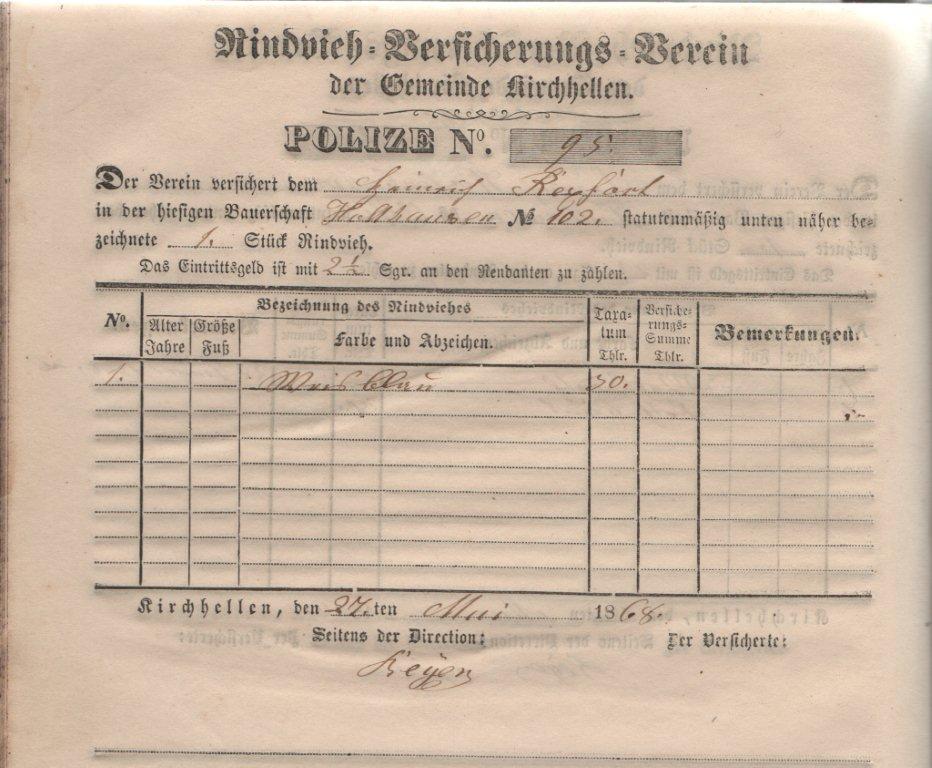 Rindvieh-Versicherungs-Verein
der Gemeinde Kirchhellen.
POLIZE No. 95
Der Verein versichert dem Heinrich
in der hiesigen Bauerschaft Holthausen № 102. statutenmäßig unten näher be-
zeichnete 1. Stück Rindvieh.
Das Eintrittsgeld ist mit 2½ Sgr. an den Rendanten zu zahlen.
No.
Bezeichnung des Rindviehes
Alter Jahre
Größe Fuß
Farbe und Abzeichen.
Taxa-
tum
Thlr.
Versiche-
rungs-
Summe
Thlr.
Bemerkungen.
1. Weis blau 30.
Kirchhellen, den 27.ten Mai 1868.
Seitens der Direction: Der Versicherte: